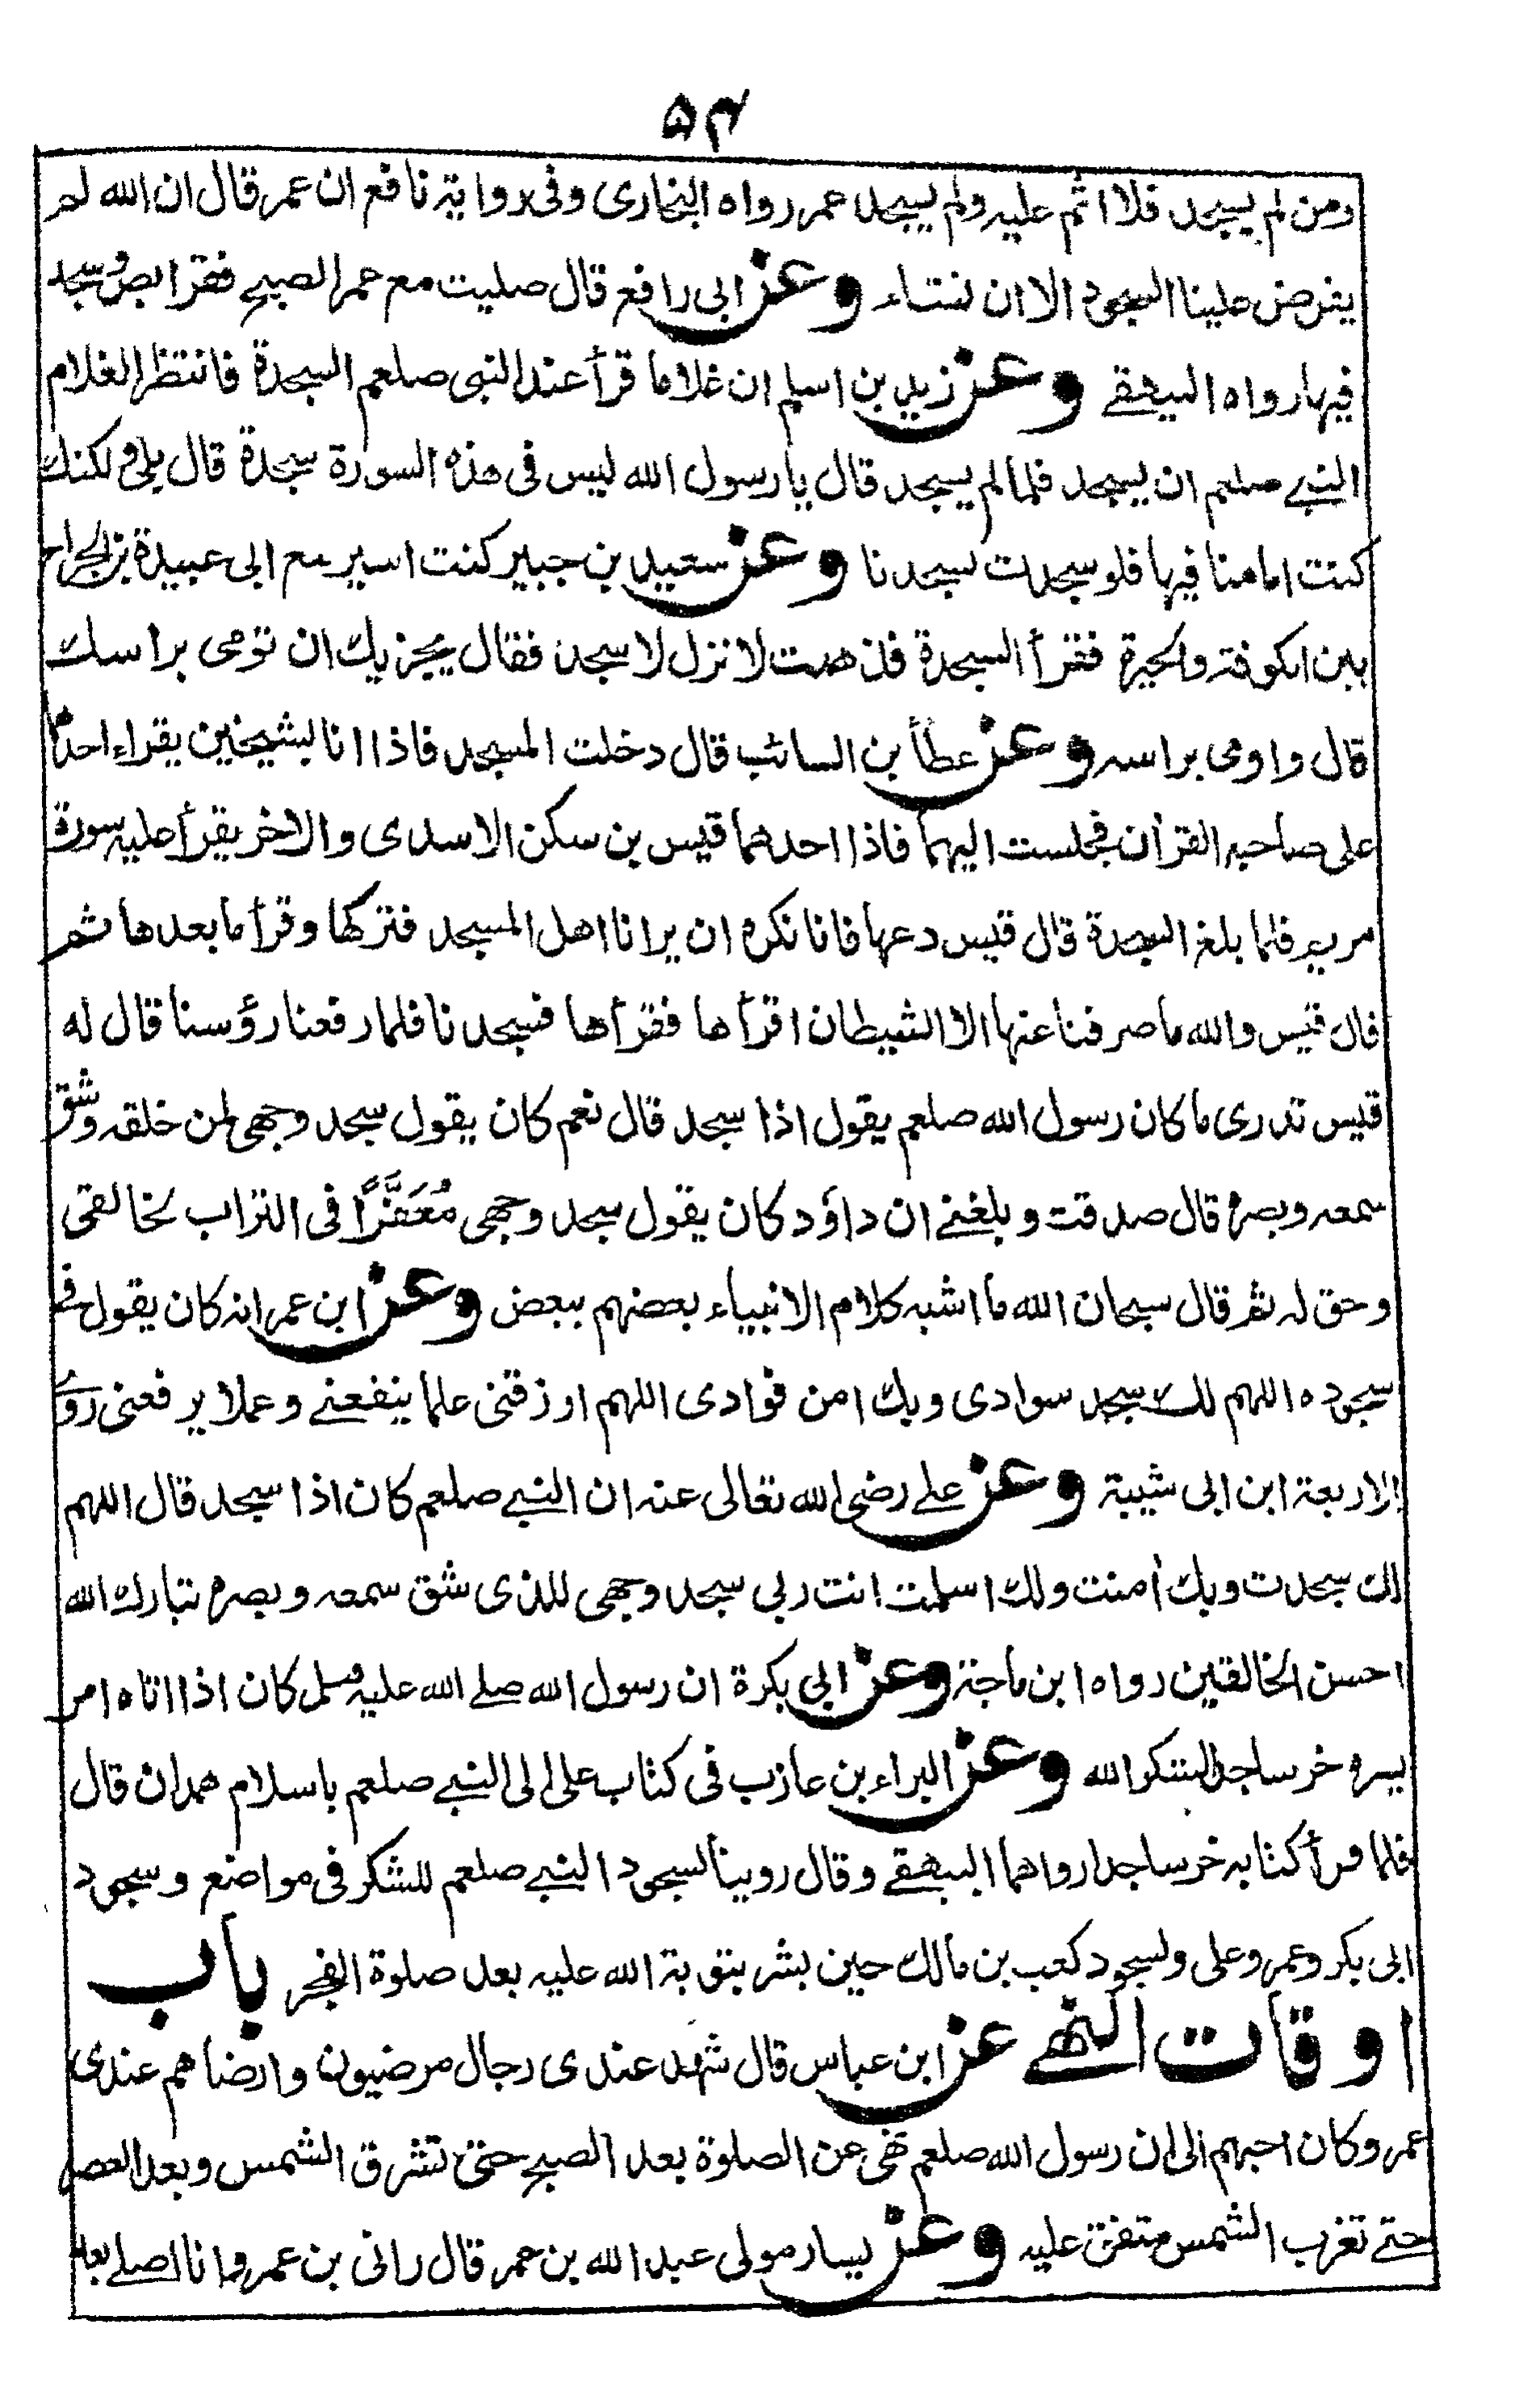 ۵۴
ومن لم يسجد فلا اثم عليه ولم يسجد عمر رواه البخارى وفى رواية نافع ان عمر قال ان الله لم
يفرض علينا السجود الا ان نشاء وعن ابى رافع قال صليت مع عمر الصبح فقرا بص وسجد
فيها رواه البيهقے وعن زيد بن اسلم ان غلاما قرأ عند النبى صلعم السجدة فانتظر الغلام
النبے صلعم ان يسجد فلما لم يسجد قال يا رسول الله ليس فى هذه السورة سجدة قال بلى ولكنك
كنت امامنا فيها فلو سجدت لسجدنا وعن سعيد بن جبير كنت اسير مع ابى عبيدة بن الجراح
بين الكوفة والحيرة فقرأ السجدة فذهبت لا نزل لا سجد فقال يجزيك ان تومى براسك
قال واومى براسه وعن عطأ بن السائب قال دخلت المسجد فاذا انا بشيخين يقراء احدهما
على صاحبه القرأن فجلست اليهما فاذا احدهما قيس بن سكن الاسدى والاخر يقرأ عليه سورة
مريم فلما بلغ السجدة قال قيس دعها فانا نكره ان يرانا اهل المسجد فتركها وقرأ ما بعدها ثم
قال قيس والله ما صرفنا عنها الا الشيطان اقرأها فقرأها فسجدنا فلما رفعنا رؤسنا قال له
قيس تدرى ما كان رسول الله صلعم يقول اذا سجد قال نعم كان يقول سجد وجهى لمن خلقه وشق
سمعه وبصره قال صدقت وبلغنے ان داؤد كان يقول سجد وجهى مُعَفَّرًا فى التراب لخالقى
وحق له ثم قال سبحان الله ما اشبه كلام الانبياء بعضهم ببعض وعن ابن عمر انه كان يقول فے
سجوده اللهم لك سجد سوادى وبك امن فوادى اللهم ارزقنى علما ينفعنے وعملا يرفعنى روى
الاربعة ابن ابى شيبة وعن علے رضى الله تعالى عنه ان النبے صلعم كان اذا سجد قال اللهم
لك سجدت وبك أمنت ولك اسلمت انت ربى سجد وجهى للذى شق سمعه وبصره تبارك الله
احسن الخالقين رواه ابن ماجة وعن ابى بكرة ان رسول الله صلے الله عليه وسلم كان اذا اتاه امر
يسره خر ساجدا لشكر الله وعن البراء بن عازب فى كتاب على الى النبے صلعم باسلام همدان قال
فلما قرأ كتابه خر ساجدا رواهما البيهقے وقال روينا لسجود النبے صلعم للشكر فى مواضع وسجود
ابى بكر وعمر وعلى ولسجود كعب بن مالك حين بشر بتوبة الله عليه بعد صلوة الفجر باب
اوقات النهے عن ابن عباس قال شهد عندى رجال مرضيون وارضاهم عندى
عمر وكان احبهم الى ان رسول الله صلعم نهى عن الصلوة بعد الصبح حتى تشرق الشمس وبعد العصر
حتے تغرب الشمس متفق عليه وعن يسار مولى عبد الله بن عمر قال رانى بن عمر وانا اصلے بعد